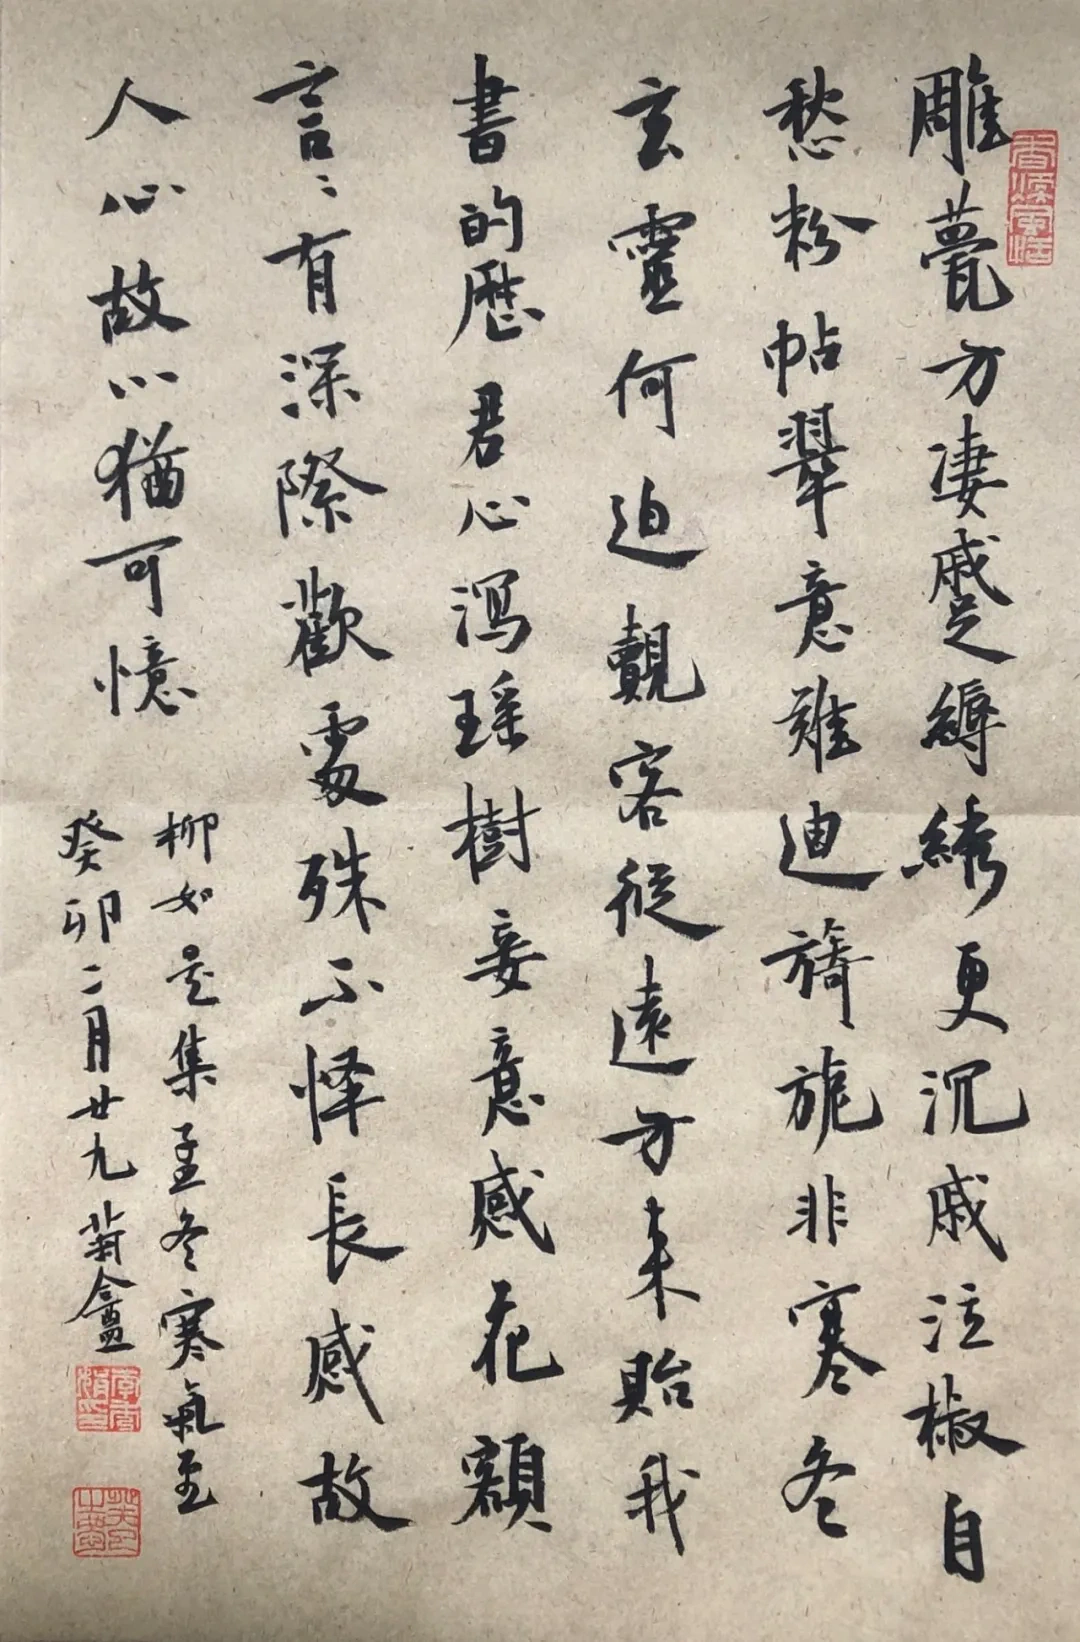 雕甍方凄蹙縟綉更沉戚注椒自
愁粉帖翠意難迪旖旎非寒冬
玄靈何迫覯客從遠方来貽我
書的歷君心瀉瑶樹妾意感花額
言〻有深際歡處殊不怿長感故
人心故心猶可憶
柳如是集孟冬寒氣至
癸卯二月廿九菊盦